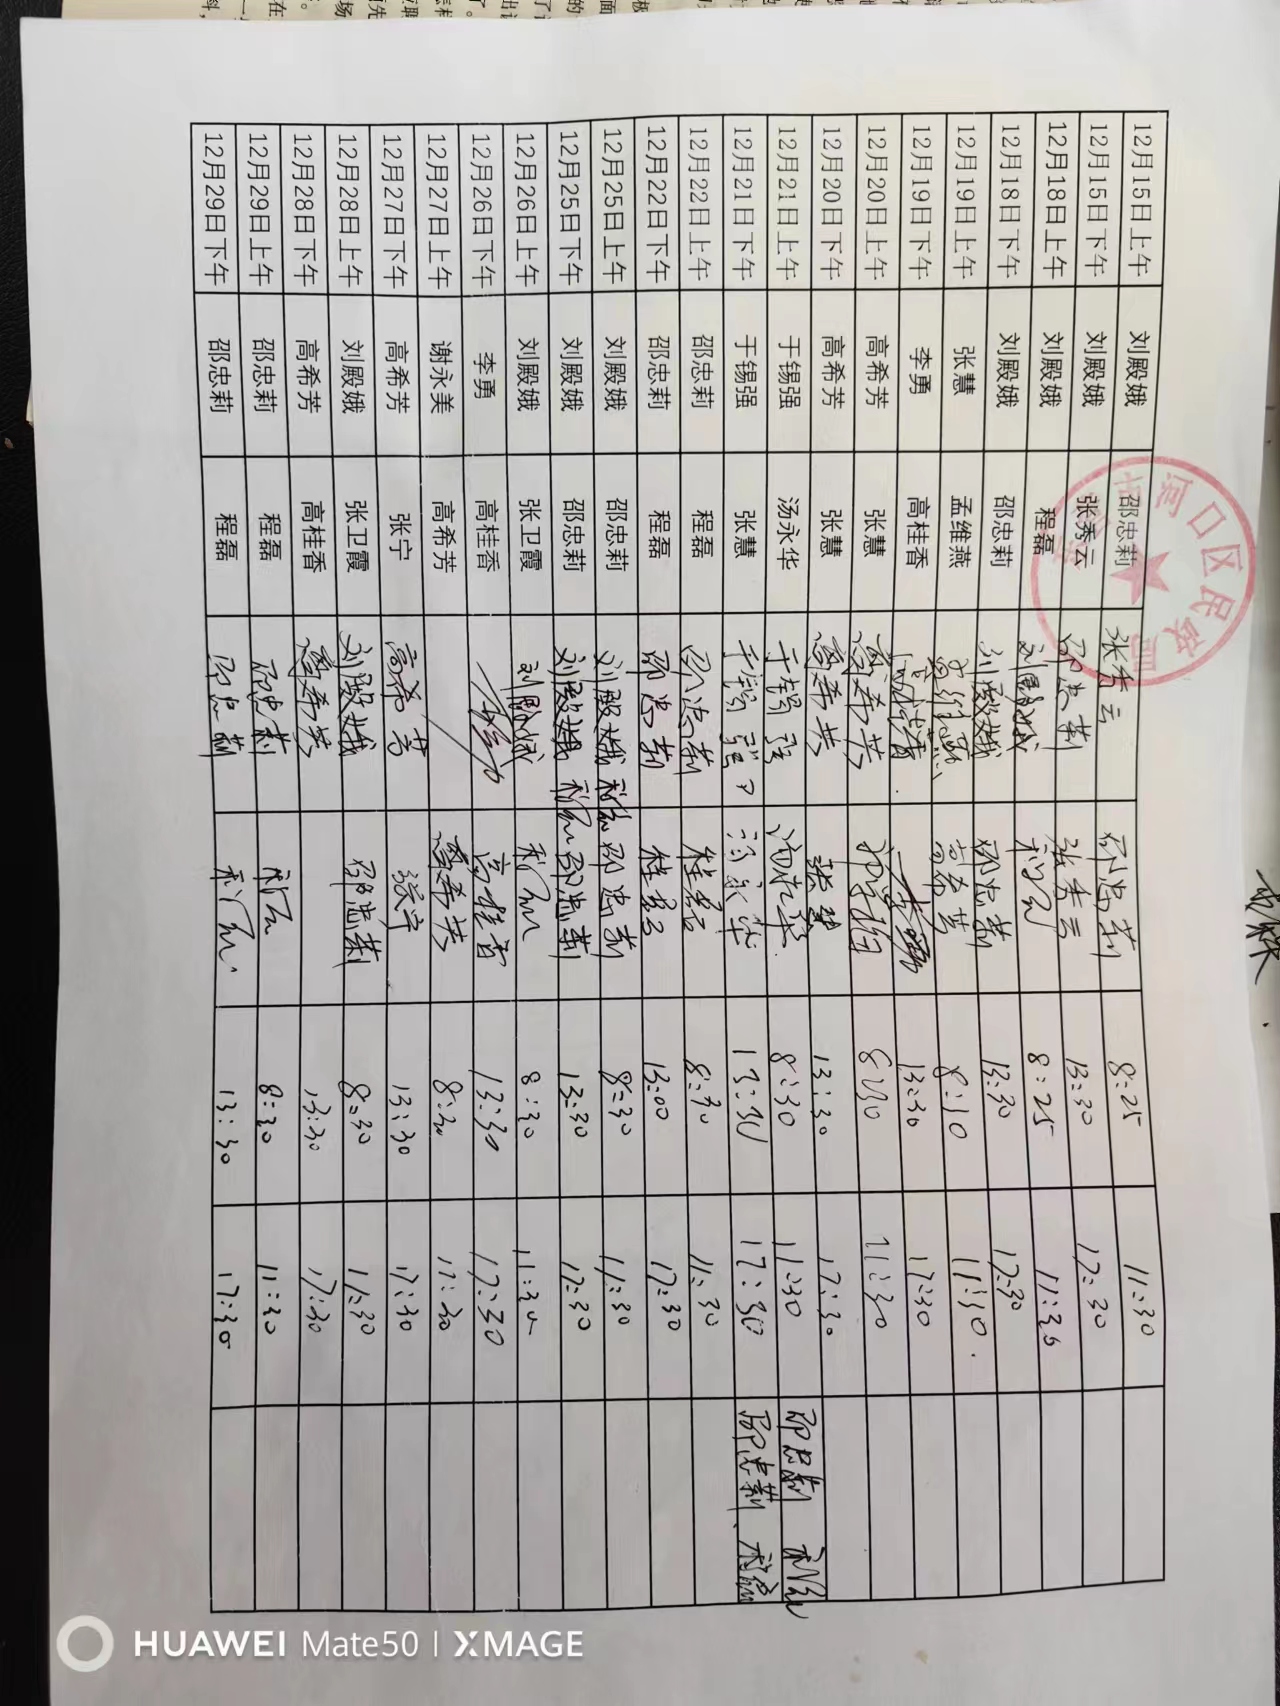 12月15日上午 刘殿娥 邵忠莉 张秀云 邵忠莉 8:25 11:30
12月15日下午 刘殿娥 张秀云 邵忠莉 张秀云 13:30 17:30
12月18日上午 刘殿娥 程磊 刘殿娥 程磊 8:25 11:30
12月18日下午 刘殿娥 邵忠莉 刘殿娥 邵忠莉 13:30 17:30
12月19日上午 张慧 孟维燕 孟维燕 高希芳 8:30 11:30
12月19日下午 李勇 高桂香 高桂香 13:30 17:30
12月20日上午 高希芳 张慧 高希芳 8:30 11:30
12月20日下午 高希芳 张慧 高希芳 张慧 13:30 17:30
12月21日上午 于锡强 汤永华 于锡强 汤永华 8:30 11:30 邵忠莉 程磊
12月21日下午 于锡强 张慧 于锡强 汤永华 13:30 17:30 邵忠莉 程磊
12月22日上午 邵忠莉 程磊 邵忠莉 程磊 8:30 11:30
12月22日下午 邵忠莉 程磊 邵忠莉 程磊 13:00 17:30
12月25日上午 刘殿娥 邵忠莉 刘殿娥 程磊 邵忠莉 8:30 11:30
12月25日下午 刘殿娥 邵忠莉 刘殿娥 程磊 邵忠莉 13:30 17:30
12月26日上午 刘殿娥 张卫霞 刘殿娥 程磊 8:30 11:30
12月26日下午 李勇 高桂香 高桂香 13:30 17:30
12月27日上午 谢永美 高希芳 高希芳 8:30 11:30
12月27日下午 高希芳 张宁 高希芳 张宁 13:30 17:30
12月28日上午 刘殿娥 张卫霞 刘殿娥 邵忠莉 8:30 11:30
12月28日下午 高希芳 高桂香 高希芳 13:30 17:30
12月29日上午 邵忠莉 程磊 邵忠莉 程磊 8:30 11:30
12月29日下午 邵忠莉 程磊 邵忠莉 程磊 13:30 17:30
河口区民政局
HUAWEI Mate50 | XMAGE